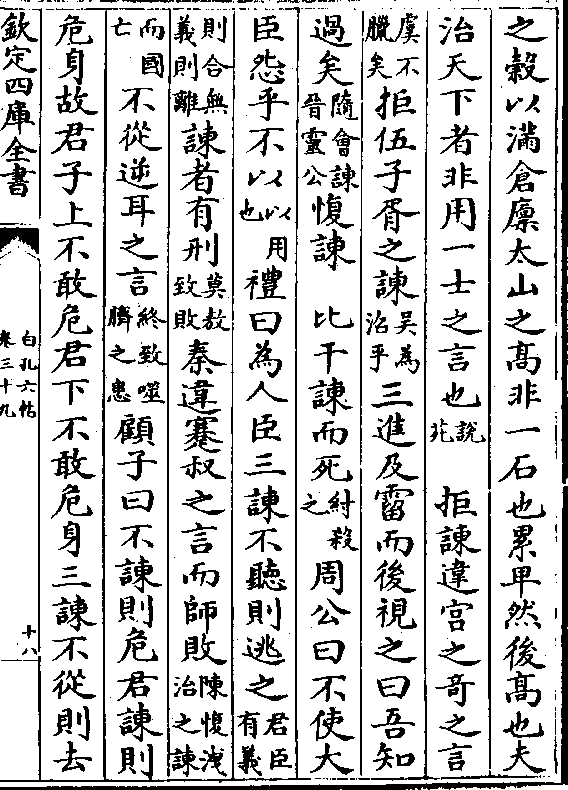 之穀以滿倉廪太山之高非一石也累卑然後高也夫
治天下者非用一士之言也說苑　拒諫違宮之竒之言
虞不臘矣拒伍子胥之諫吳為沼乎三進及霤而後視之曰吾知
過矣隨會諫晉靈公愎諫　比干諫而死紂殺之周公曰不使大
臣怨乎不以以用也禮曰為人臣三諫不聽則逃之君臣有義
則合無義則離諫者有刑莫敖致敗秦違蹇叔之言而師敗陳愎洩治之諫
而國亡不從逆耳之言終致噬臍之患顧子曰不諫則危君諫則
危身故君子上不敢危君下不敢危身三諫不從則去
欽定四庫全書
白孔六帖
卷三十九
十八